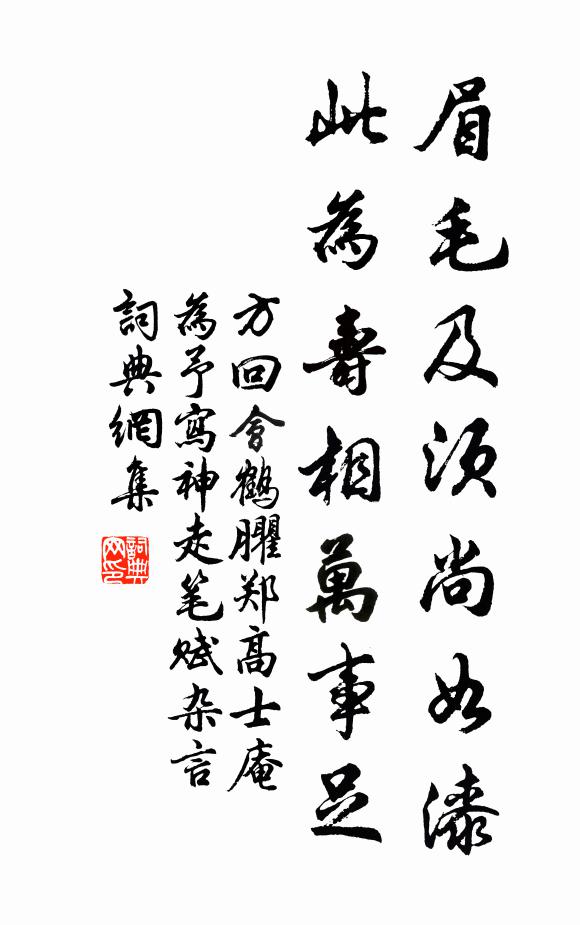 眉毛及须尚如漆
此為壽相萬事足
方回會鶴臞郑高士庵
為予寫神走笔赋杂言
詞典網集
詞典网印